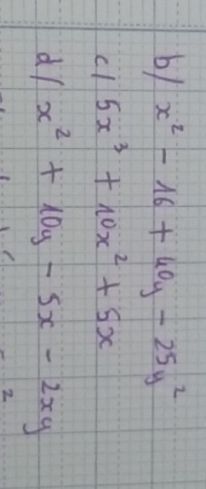 b/ x² - 16 + 40y - 25y²
c/ 5x³ + 10x² + 5x
d/ x² + 10y - 5x - 2xy